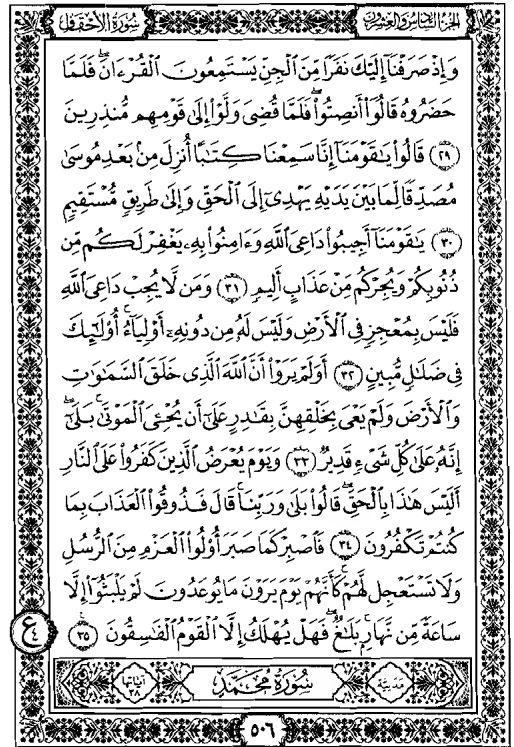 الجزء السادس والعشرون
سورة الأحقاف
وَإِذْ صَرَفْنَآ إِلَيْكَ نَفَرًا مِّنَ ٱلْجِنِّ يَسْتَمِعُونَ ٱلْقُرْءَانَ ۖ فَلَمَّا
حَضَرُوهُ قَالُوٓا۟ أَنصِتُوا۟ ۖ فَلَمَّا قُضِىَ وَلَّوْا۟ إِلَىٰ قَوْمِهِم مُّنذِرِينَ
﴿٢٩﴾ قَالُوا۟ يَٰقَوْمَنَآ إِنَّا سَمِعْنَا كِتَٰبًا أُنزِلَ مِنۢ بَعْدِ مُوسَىٰ
مُصَدِّقًا لِّمَا بَيْنَ يَدَيْهِ يَهْدِىٓ إِلَى ٱلْحَقِّ وَإِلَىٰ طَرِيقٍ مُّسْتَقِيمٍ
﴿٣٠﴾ يَٰقَوْمَنَآ أَجِيبُوا۟ دَاعِىَ ٱللَّهِ وَءَامِنُوا۟ بِهِۦ يَغْفِرْ لَكُم مِّن
ذُنُوبِكُمْ وَيُجِرْكُم مِّنْ عَذَابٍ أَلِيمٍ ﴿٣١﴾ وَمَن لَّا يُجِبْ دَاعِىَ ٱللَّهِ
فَلَيْسَ بِمُعْجِزٍ فِى ٱلْأَرْضِ وَلَيْسَ لَهُۥ مِن دُونِهِۦٓ أَوْلِيَآءُ ۚ أُو۟لَٰٓئِكَ
فِى ضَلَٰلٍ مُّبِينٍ ﴿٣٢﴾ أَوَلَمْ يَرَوْا۟ أَنَّ ٱللَّهَ ٱلَّذِى خَلَقَ ٱلسَّمَٰوَٰتِ
وَٱلْأَرْضَ وَلَمْ يَعْىَ بِخَلْقِهِنَّ بِقَٰدِرٍ عَلَىٰٓ أَن يُحْۦِىَ ٱلْمَوْتَىٰ ۚ بَلَىٰٓ
إِنَّهُۥ عَلَىٰ كُلِّ شَىْءٍ قَدِيرٌ ﴿٣٣﴾ وَيَوْمَ يُعْرَضُ ٱلَّذِينَ كَفَرُوا۟ عَلَى ٱلنَّارِ
أَلَيْسَ هَٰذَا بِٱلْحَقِّ ۖ قَالُوا۟ بَلَىٰ وَرَبِّنَا ۚ قَالَ فَذُوقُوا۟ ٱلْعَذَابَ بِمَا
كُنتُمْ تَكْفُرُونَ ﴿٣٤﴾ فَٱصْبِرْ كَمَا صَبَرَ أُو۟لُوا۟ ٱلْعَزْمِ مِنَ ٱلرُّسُلِ
وَلَا تَسْتَعْجِل لَّهُمْ ۚ كَأَنَّهُمْ يَوْمَ يَرَوْنَ مَا يُوعَدُونَ لَمْ يَلْبَثُوٓا۟ إِلَّا
سَاعَةً مِّن نَّهَارٍۭ ۚ بَلَٰغٌ ۚ فَهَلْ يُهْلَكُ إِلَّا ٱلْقَوْمُ ٱلْفَٰسِقُونَ ﴿٣٥﴾
ع ٤
مدنية
سُورَةُ مُحَمَّدٍ
آياتها ٣٨
٥٠٦